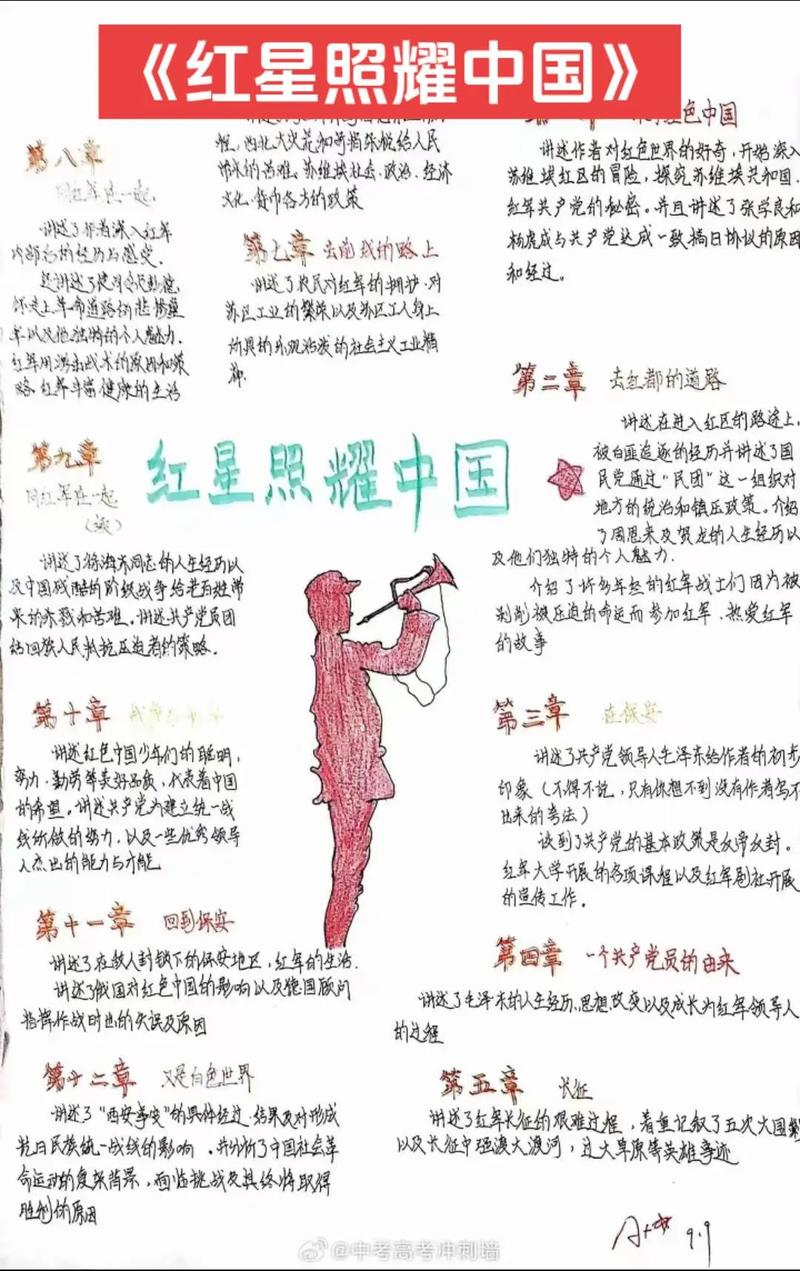 《红星照耀中国》
红色中国
讲述作者对红色世界的好奇,开始深入
苏维埃红区的冒险,探究苏维埃共和国、
红军共产党的秘密。并且讲述了张学良和
杨虎成与共产党达成一致搞日协议的原因
和经过。
第二章 去红都的道路
讲述在进入红区的路途上,
被白匪追逐的经历并讲述了国
民党通过“民团”这一组织对
地方的统治和镇压政策。介绍
了周恩来及贺龙的人生经历以
及他们独特的个人魅力.
介绍了许多年轻的红军战士们因为被
剥削被压迫的命运而参加红军、热爱红军
的故事
第三章 在保安
讲述了共产党领导人毛泽东给作者的初步
印象(不得不说,只有你想不到没有作者写不
出来的考法)
谈到了共产党的基本政策是反帝反封。
红军大学开展的各项课程以及红军剧社开展
的宣传工作。
第四章 一个共产党员的由来
讲述了毛泽东的人生经历、思想改变以及成长为红军领导人
的过程
第五章 长征
讲述了红军长征的艰难过程,着重记叙了五次大围剿
以及长征中强渡大渡河,过大草原等英雄事迹
程,西北大灾荒和苛捐杂税给人民
带来的苦难、苏维埃社会、政治、经济
文化、货币各方的政策
第七章 去前线的路上
讲述了农民对红军的拥护、对
苏区工业的繁荣以及苏区工人身上
所具的乐观活泼的社会主义工业精
第八章
同红军在一起
讲述了作者深入红军
内部后的经历与感受.
还讲述了彭德怀
走上革命道路的悲惨童
年以及他独特的个人魅力.
红军用游击战术的原因和策
略、红军丰富健康的生活
第九章
同红军在一起
(续)
讲述了徐海东同志的人生经历以
及中国残酷的阶级战争给老百姓带
来的杀戮和苦难。讲述共产党员团
结回族人民抵抗压迫者的策略.
第十章
讲述红色中国少年们的聪明、
努力、勤劳等美好品质,代表着中国
的希望。讲述共产党为建立统一战
线所做的努力,以及一些优秀领导
人杰出的能力与才能
第十一章 回到保安
讲述了在敌人封锁下的保安地区,红军的生活.
讲述了俄国对红色中国的影响以及德国顾问
指挥作战时出的失误及原因
第十二章 又是白色世界
讲述了“西安事变”的具体经过、结果及对形成
抗日民族统一战线的影响.并分析了中国社会革
命运动的复杂背景,面临挑战及其终将取得
胜利的原因
红星照耀中国
9.9
@中考高考冲刺墙